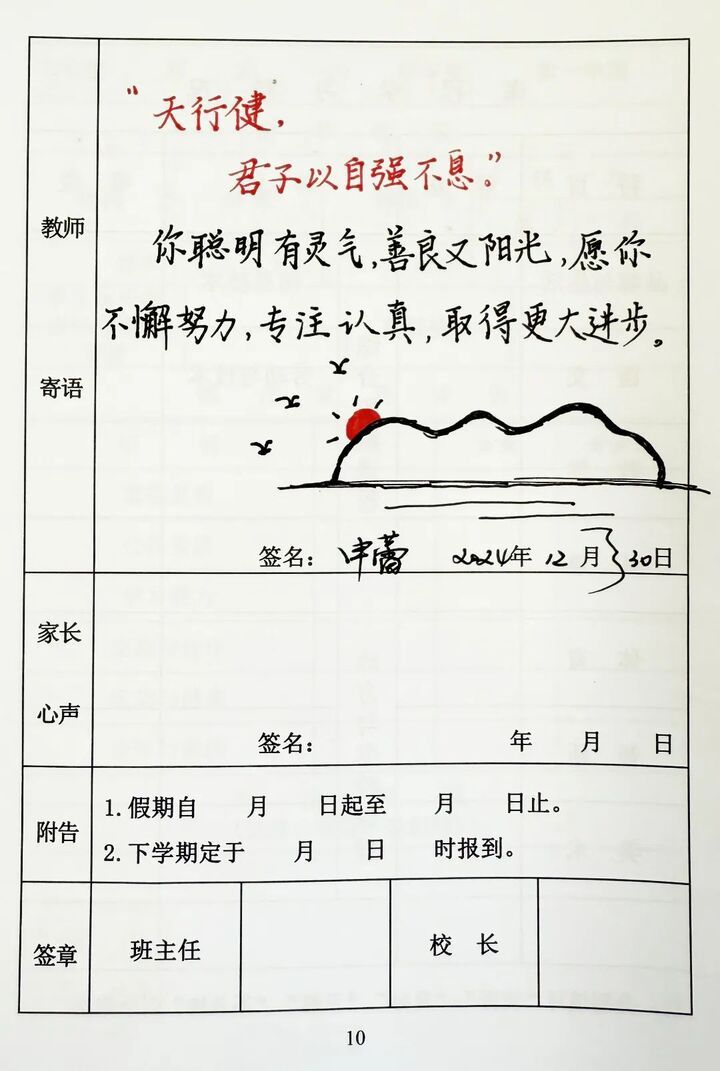 “天行健，
君子以自强不息。”
教师
你聪明有灵气，善良又阳光，愿你
不懈努力，专注认真，取得更大进步。
寄语
签名： 申蕾 2024年 12 月 30日
家长
心声
签名： 年 月 日
附告
1.假期自 月 日起至 月 日止。
2.下学期定于 月 日 时报到。
签章 班主任 校 长
10